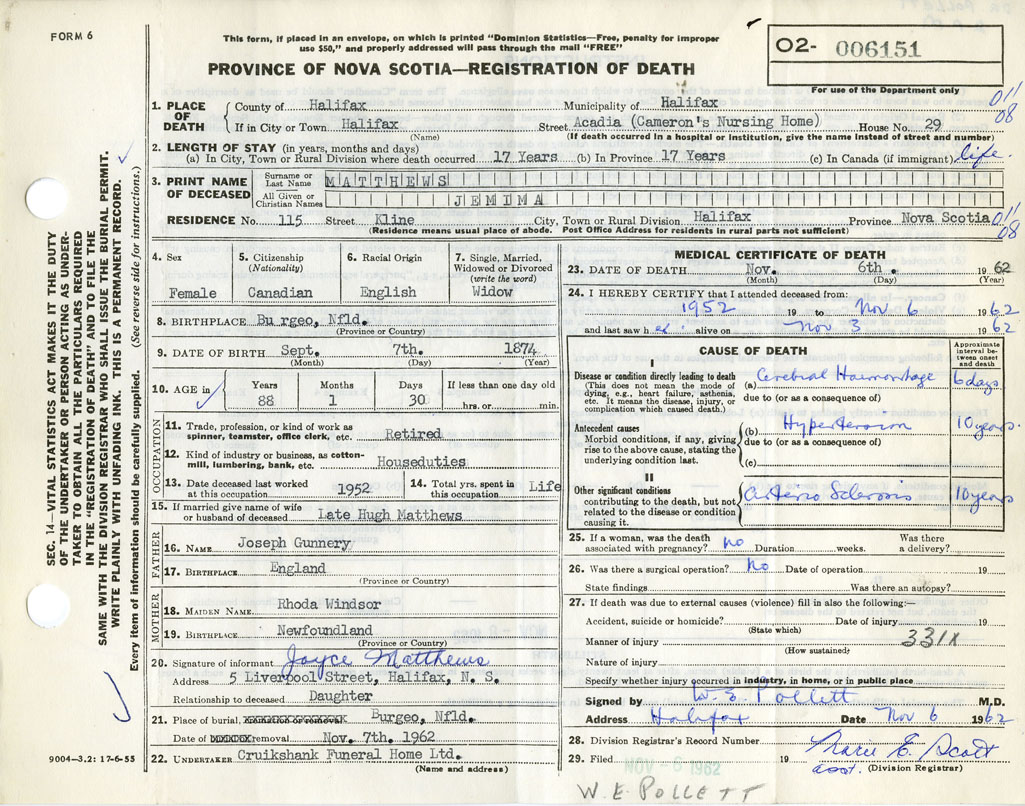 FORM 6
This form, if placed in an envelope, on which is printed "Dominion Statistics—Free, penalty for improper
use $50," and properly addressed will pass through the mail "FREE"
PROVINCE OF NOVA SCOTIA—REGISTRATION OF DEATH
O2- 006151
For use of the Department only
1. PLACE OF DEATH
County of Halifax Municipality of Halifax 011
If in City or Town Halifax Street Acadia (Cameron's Nursing Home) House No. 29 08
(Name) (If death occurred in a hospital or institution, give the name instead of street and number)
2. LENGTH OF STAY (in years, months and days)
(a) In City, Town or Rural Division where death occurred 17 Years (b) In Province 17 Years (c) In Canada (if immigrant) life.
3. PRINT NAME OF DECEASED
Surname or Last Name MATTHEWS
All Given or Christian Names JEMIMA
RESIDENCE No. 115 Street Kline City, Town or Rural Division Halifax Province Nova Scotia 011
(Residence means usual place of abode. Post Office Address for residents in rural parts not sufficient) 08
4. Sex Female
5. Citizenship (Nationality) Canadian
6. Racial Origin English
7. Single, Married, Widowed or Divorced (write the word) Widow
8. BIRTHPLACE Burgeo, Nfld.
(Province or Country)
9. DATE OF BIRTH Sept. 7th. 1874
(Month) (Day) (Year)
10. AGE in Years 88 Months 1 Days 30 If less than one day old hrs. or min.
OCCUPATION
11. Trade, profession, or kind of work as spinner, teamster, office clerk, etc. Retired
12. Kind of industry or business, as cotton-mill, lumbering, bank, etc. Houseduties
13. Date deceased last worked at this occupation 1952 14. Total yrs. spent in this occupation Life
15. If married give name of wife or husband of deceased Late Hugh Matthews
FATHER
16. NAME Joseph Gunnery
17. BIRTHPLACE England
(Province or Country)
MOTHER
18. MAIDEN NAME Rhoda Windsor
19. BIRTHPLACE Newfoundland
(Province or Country)
20. Signature of informant Joyce Matthews
Address 5 Liverpool Street, Halifax, N. S.
Relationship to deceased Daughter
21. Place of burial, Burgeo, Nfld.
Date of removal Nov. 7th. 1962
22. UNDERTAKER Cruikshank Funeral Home Ltd.
(Name and address)
MEDICAL CERTIFICATE OF DEATH
23. DATE OF DEATH Nov. 6th. 1962
(Month) (Day) (Year)
24. I HEREBY CERTIFY that I attended deceased from:
1952 19 to Nov 6 1962
and last saw h er alive on Nov 3 1962
CAUSE OF DEATH
Approximate interval between onset and death
I
Disease or condition directly leading to death
(This does not mean the mode of dying, e.g., heart failure, asthenia, etc. It means the disease, injury, or complication which caused death.)
(a) Cerebral Haemorrhage 6 days
due to (or as a consequence of)
Antecedent causes
Morbid conditions, if any, giving rise to the above cause, stating the underlying condition last.
(b) Hypertension 10 years.
due to (or as a consequence of)
(c)
II
Other significant conditions
contributing to the death, but not related to the disease or condition causing it.
Arterio Sclerosis 10 years
25. If a woman, was the death associated with pregnancy? no Duration weeks. Was there a delivery?
26. Was there a surgical operation? No Date of operation 19
State findings Was there an autopsy?
27. If death was due to external causes (violence) fill in also the following:—
Accident, suicide or homicide? Date of injury 19
(State which)
Manner of injury 331X
(How sustained)
Nature of injury
Specify whether injury occurred in industry, in home, or in public place
Signed by W. E. Pollett M.D.
Address Halifax Date Nov 6 1962
28. Division Registrar's Record Number
29. Filed NOV - 6 1962 19 Marie E. Scott
asst. (Division Registrar)
W. E. POLLETT
SEC. 14—VITAL STATISTICS ACT MAKES IT THE DUTY
OF THE UNDERTAKER OR PERSON ACTING AS UNDER-
TAKER TO OBTAIN ALL THE PARTICULARS REQUIRED
IN THE "REGISTRATION OF DEATH" AND TO FILE THE
SAME WITH THE DIVISION REGISTRAR WHO SHALL ISSUE THE BURIAL PERMIT.
WRITE PLAINLY WITH UNFADING INK. THIS IS A PERMANENT RECORD.
Every item of information should be carefully supplied. (See reverse side for instructions.)
9004—3.2: 17-6-55